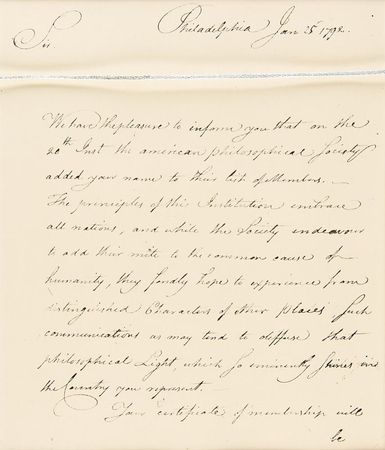 Philadelphia Jan 25t 1792.
Sir
We have the pleasure to inform you that on the
20th Inst the american philosophical Society
added your name to their list of Members. —
The principles of this Institution embrace
all nations, and while the Society endeavour
to add their mite to the common cause of
humanity, they fondly hope to experience from
distinguished Characters of other places such
communications as may tend to diffuse that
philosophical Light, which so eminently shines in
the Country you represent. —
Your certificate of membership will
be